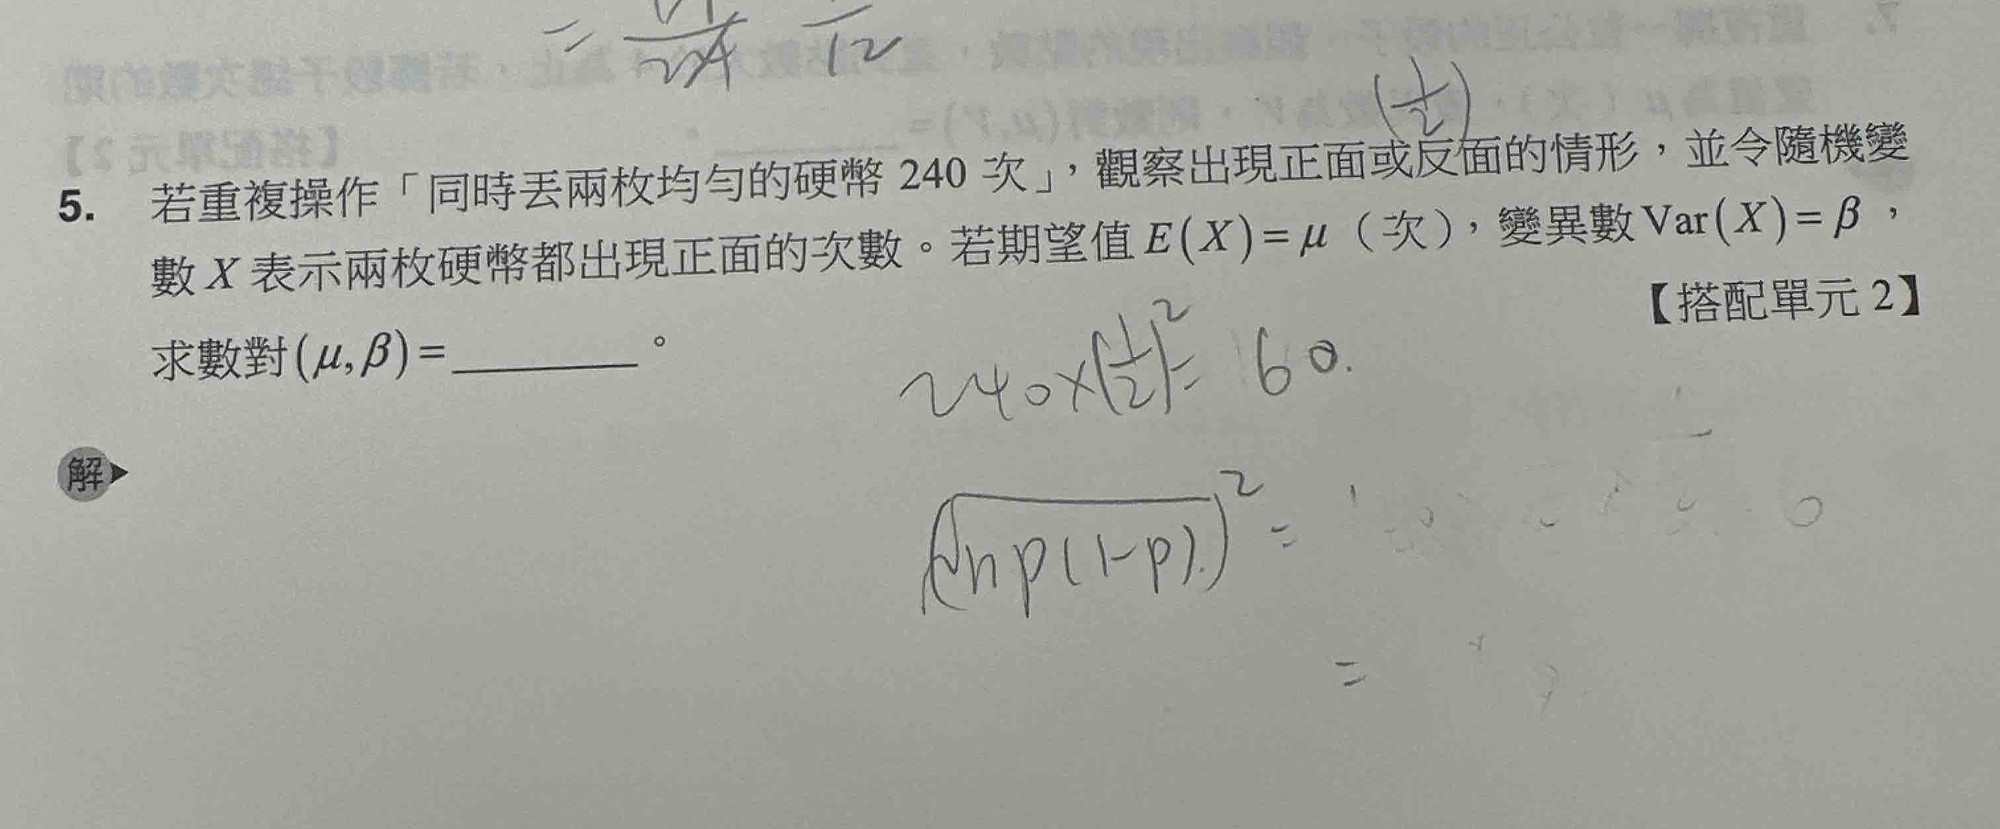 = 24 12
(1/2)
5. 若重複操作「同時丟兩枚均勻的硬幣 240 次」，觀察出現正面或反面的情形，並令隨機變
數 X 表示兩枚硬幣都出現正面的次數。若期望值 E(X)=μ（次），變異數 Var(X)=β，
求數對(μ,β)=________。
【搭配單元 2】
240×(1/2)²= 60.
解
(√np(1-p))² =
=